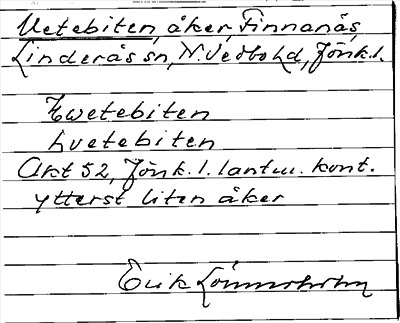 Vetebiten, åker, Finnanäs,
Linderås sn, N. Vedbo hd, Jönk. l.
Hwetebiten
hvetebiten
Akt 52, Jönk. l. lantm. kont.
ytterst liten åker
Erik